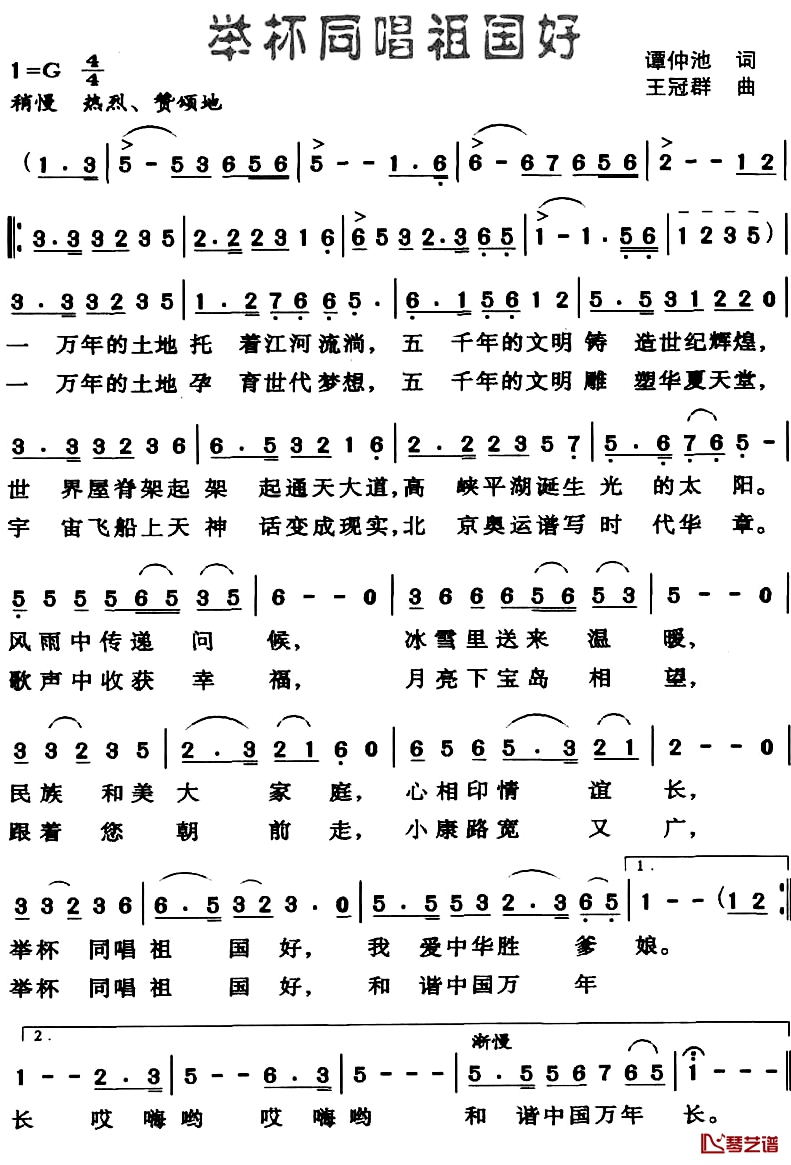 举杯同唱祖国好
1=G 4/4
谭仲池 词
王冠群 曲
稍慢 热烈、赞颂地
(1·3 | 5 - 53656 | 5 - - 1·6 | 6 - 67656 | 2 - - 12
3·33235 | 2·22316 | 6532·365 | 1 - 1·56 | 1235)
3·33235 | 1·27665· | 6·15612 | 5·531220
一 万年的土地 托 着江河流淌， 五 千年的文明 铸 造世纪辉煌，
一 万年的土地 孕 育世代梦想， 五 千年的文明 雕 塑华夏天堂，
3·33236 | 6·53216 | 2·22357 | 5·6765 -
世 界屋脊架起 架 起通天大道，高 峡平湖诞生 光 的太 阳。
宇 宙飞船上天 神 话变成现实，北 京奥运谱写 时 代华 章。
5556535 | 6 - - 0 | 36665653 | 5 - - 0
风雨中传递 问 候， 冰雪里送来 温 暖，
歌声中收获 幸 福， 月亮下宝岛 相 望，
33235 | 2·32160 | 6565·321 | 2 - - 0
民族 和美 大 家 庭， 心相印情 谊 长，
跟着 您 朝 前 走， 小康路宽 又 广，
33236 | 6·5323·0 | 5·5532·365 | 1. 1 - - (12
举杯 同唱 祖 国 好， 我 爱中华胜 爹 娘。
举杯 同唱 祖 国 好， 和 谐中国万 年
2. 渐慢
1 - - 2·3 | 5 - - 6·3 | 5 - - | 5·56765 | 1 - -
长 哎 嗨哟 哎 嗨哟 和 谐中国万年 长。
琴艺谱